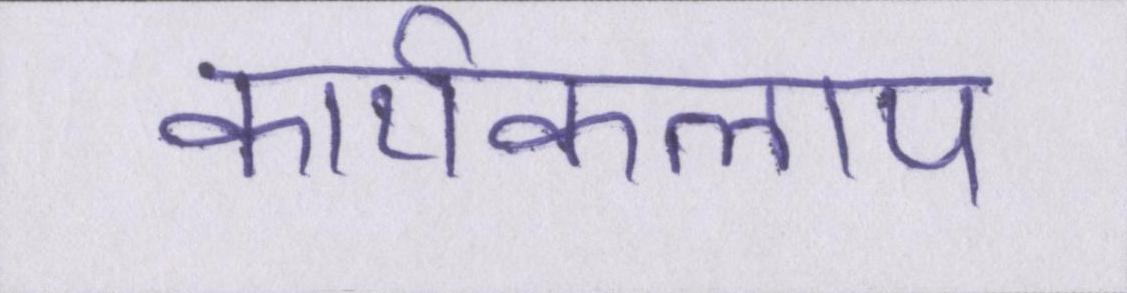 कार्यकलाप